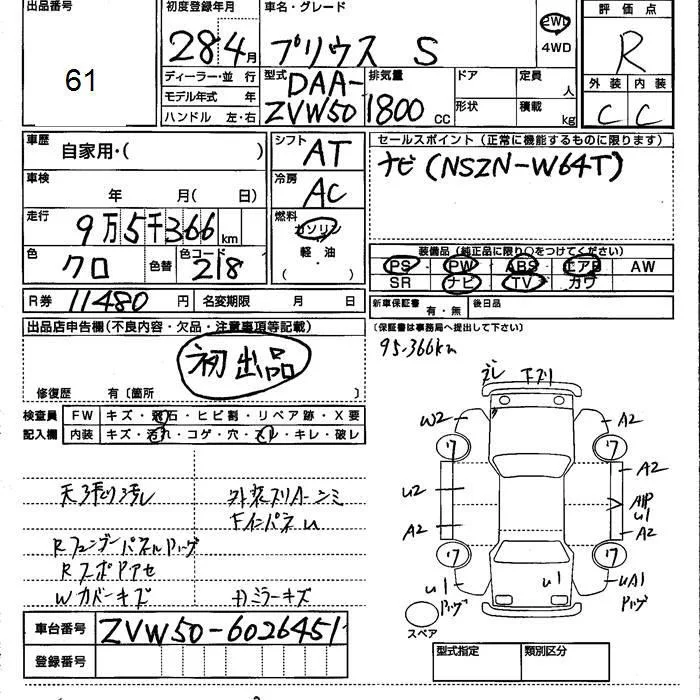 出品番号
61
初度登録年月
28年4月
車名・グレード
プリウス S
2WD
4WD
評価点
R
ディーラー・並 行
モデル年式 年
ハンドル 左・右
型式
DAA-
ZVW50
排気量
1800 cc
ドア
形状
定員
人
積載
kg
外装 内装
C C
車歴
自家用・( )
シフト
AT
セールスポイント (正常に機能するものに限ります)
ナビ (NSZN-W64T)
車検
年 月( 日)
冷房
AC
走行
9万5千366km
燃料
ガソリン
軽・油
( )
色
クロ
色替
色コード
218
装備品(純正品に限り○をつけてください)
PS PW ABS エアB AW
SR ナビ TV カワ
R券 11480 円
名変期限 月 日
新車保証書 有・無
後日品
出品店申告欄(不良内容・欠品・注意事項等記載)
初出品
修復歴 有〔箇所 〕
〔保証書は事務局へ提出して下さい〕
95.366km
検査員 FW キズ・飛石・ヒビ割・リペア跡・X要
記入欄 内装 キズ・汚れ・コゲ・穴・スレ・キレ・破レ
ズレ 下スリ
W2 A2
ワ ワ
A2
U2
U1
A2 A2
ワ ワ
U1 U1 UA1
スペア
天張り汚レ
Rスポアセ
Wカバーキズ
Dミラーキズ
車台番号 ZVW50-6026451
登録番号
型式指定 類別区分